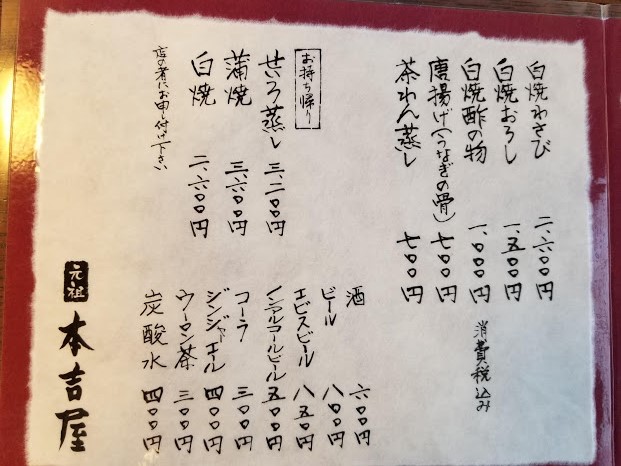 白焼わさび 二、六〇〇円
白焼おろし 一、五〇〇円
白焼酢の物 一、〇〇〇円
唐揚げ(うなぎの骨) 七〇〇円
茶わん蒸し 七〇〇円
消費税込み
お持ち帰り
せいろ蒸し 三、二〇〇円
蒲焼 三、六〇〇円
白焼 二、六〇〇円
店の者にお申し付け下さい
酒 六〇〇円
ビール 八〇〇円
エビスビール 八五〇円
ノンアルコールビール 五〇〇円
コーラ 三〇〇円
ジンジャーエール 四〇〇円
ウーロン茶 三〇〇円
炭酸水 四〇〇円
元祖
本吉屋